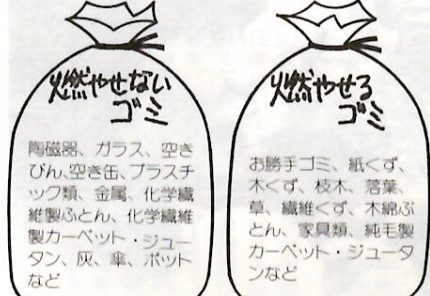 燃やせない
ゴミ
陶磁器、ガラス、空き
びん、空き缶、プラスチ
ック類、金属、化学繊
維製ふとん、化学繊維
製カーペット・ジュー
タン、灰、傘、ポット
など
燃やせる
ゴミ
お勝手ゴミ、紙くず、
木くず、枝木、落葉、
草、繊維くず、木綿ぶ
とん、家具類、純毛製
カーペット・ジュータ
ンなど